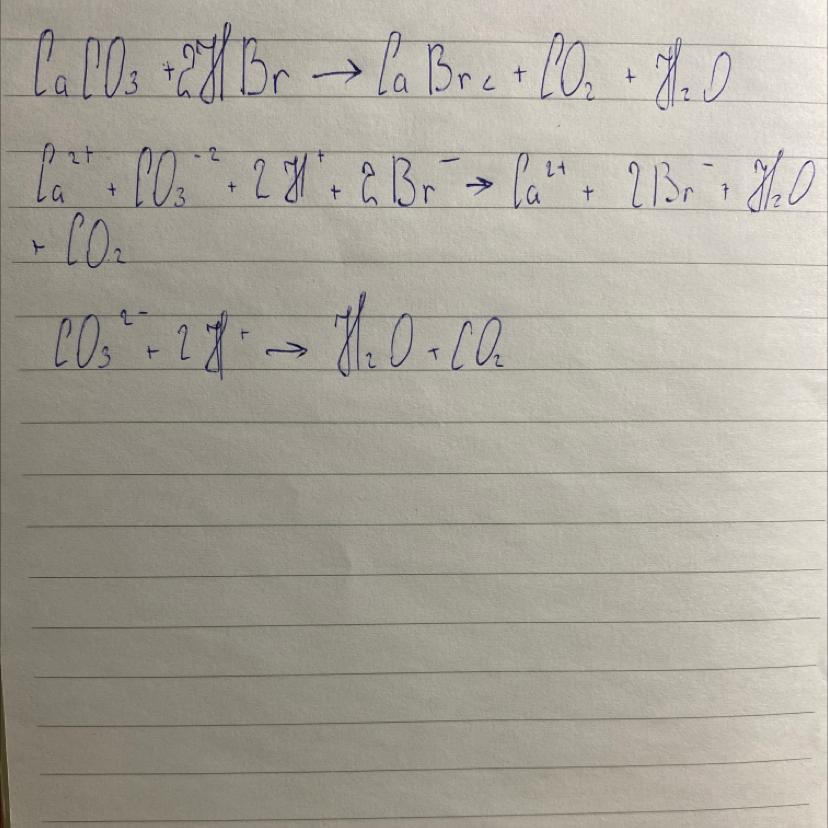 CaCO₃ + 2HBr → CaBr₂ + CO₂ + H₂O
Ca²⁺ + CO₃⁻² + 2H⁺ + 2Br⁻ → Ca²⁺ + 2Br⁻ + H₂O
+ CO₂
CO₃²⁻ + 2H⁺ → H₂O + CO₂